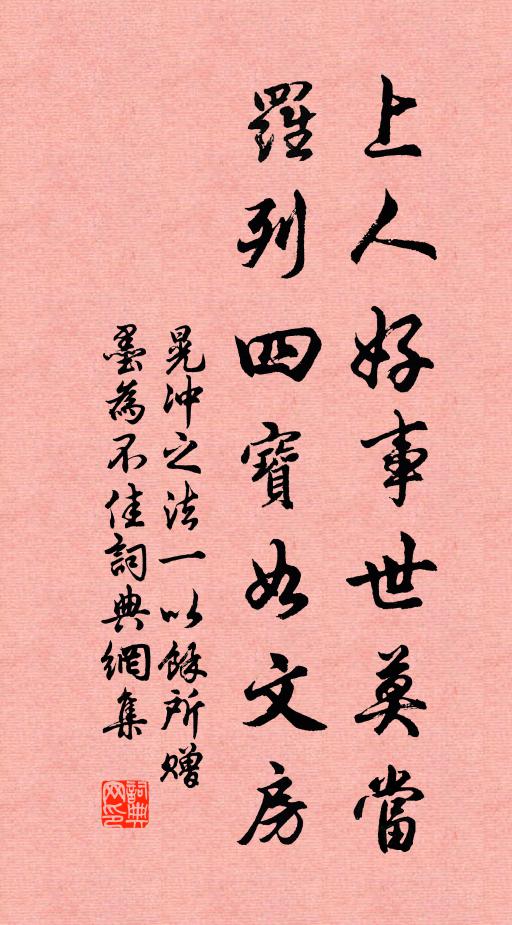 上人好事世莫當
羅列四寶如文房
晁冲之法一以餘所贈
墨為不佳詞典網集
詞典网印